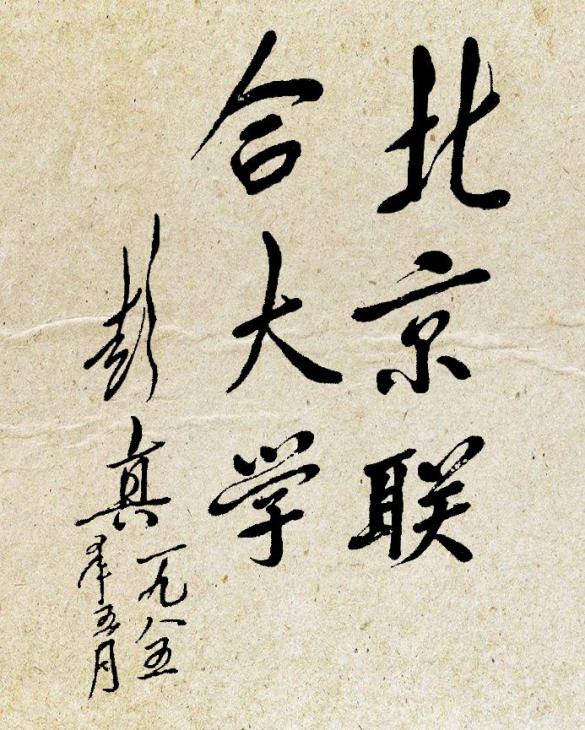 北京联
合大学
彭真
一九八五
年五月